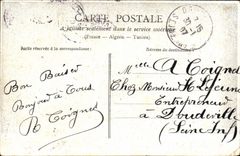 CARTE POSTALE
A utiliser seulement dans le service intérieur
(France - Algérie - Tunisie)
Partie réservée à la correspondance
Adresse du destinataire
Bon Baiser
Bonjour à Tous
R Coignet
Melle A Coignet
Chez Monsieur H Lejeune
Entrepreneur
à Doudeville
(Seine Inf)